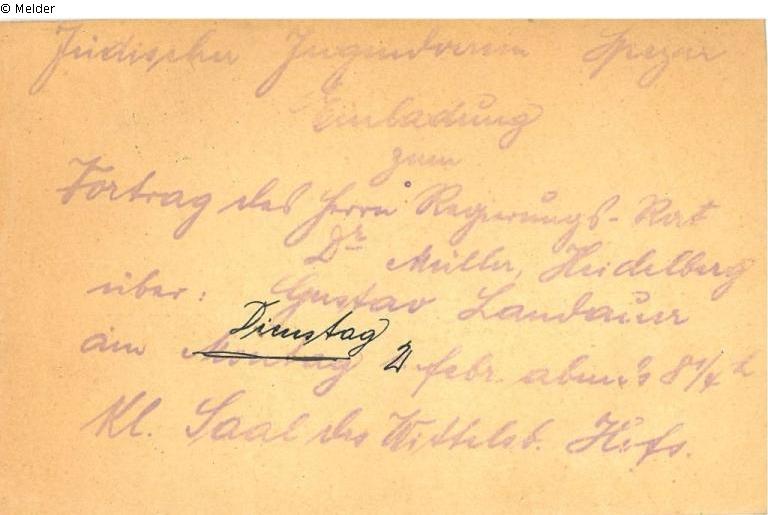 © Melder
Jüdischer Jugendverein Speyer
Einladung
zum
Vortrag des Herrn Regierungs-Rat
Dr Müller, Heidelberg
über: Gustav Landauer
Dienstag
am Montag 2 Febr. abends 8 1/4 h
Kl. Saal des Wittelsb. Hofs.